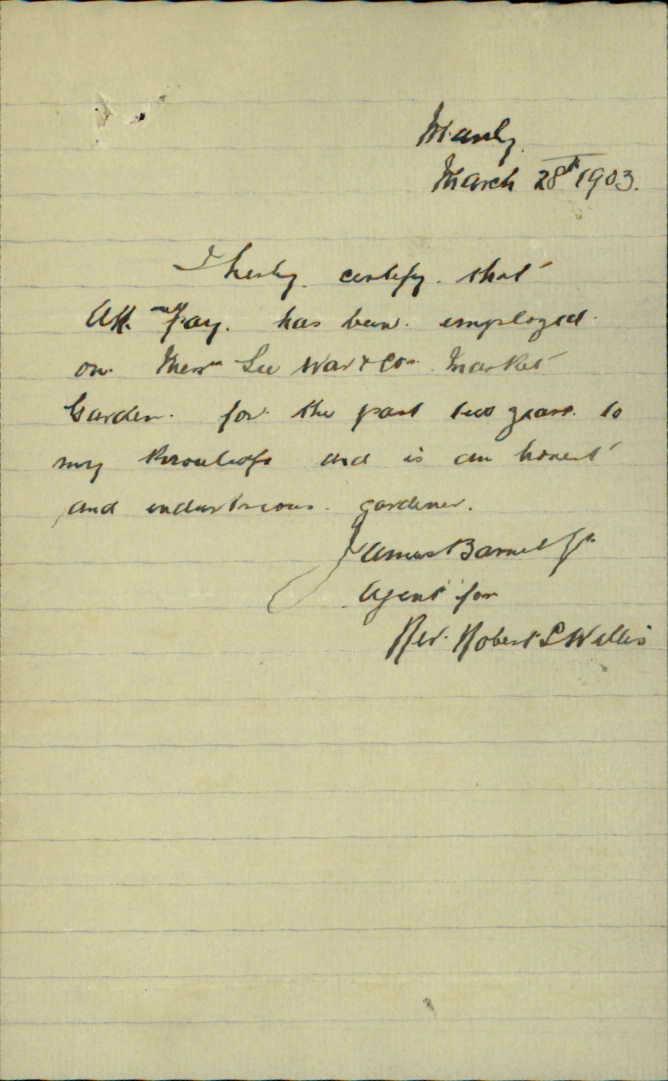 Manly
March 28th 1903.
I herby certify that
Ah Fay. has been employed
on Messrs Lee War & Co Market
Garden. for the past two years to
my knowledge and is an honest
and industrious gardener.
James Barnet Jr
Agent for
Rev. Robert S Willis